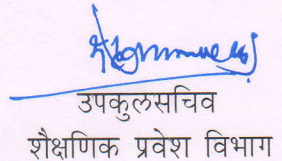 उपकुलसचिव
शैक्षणिक प्रवेश विभाग